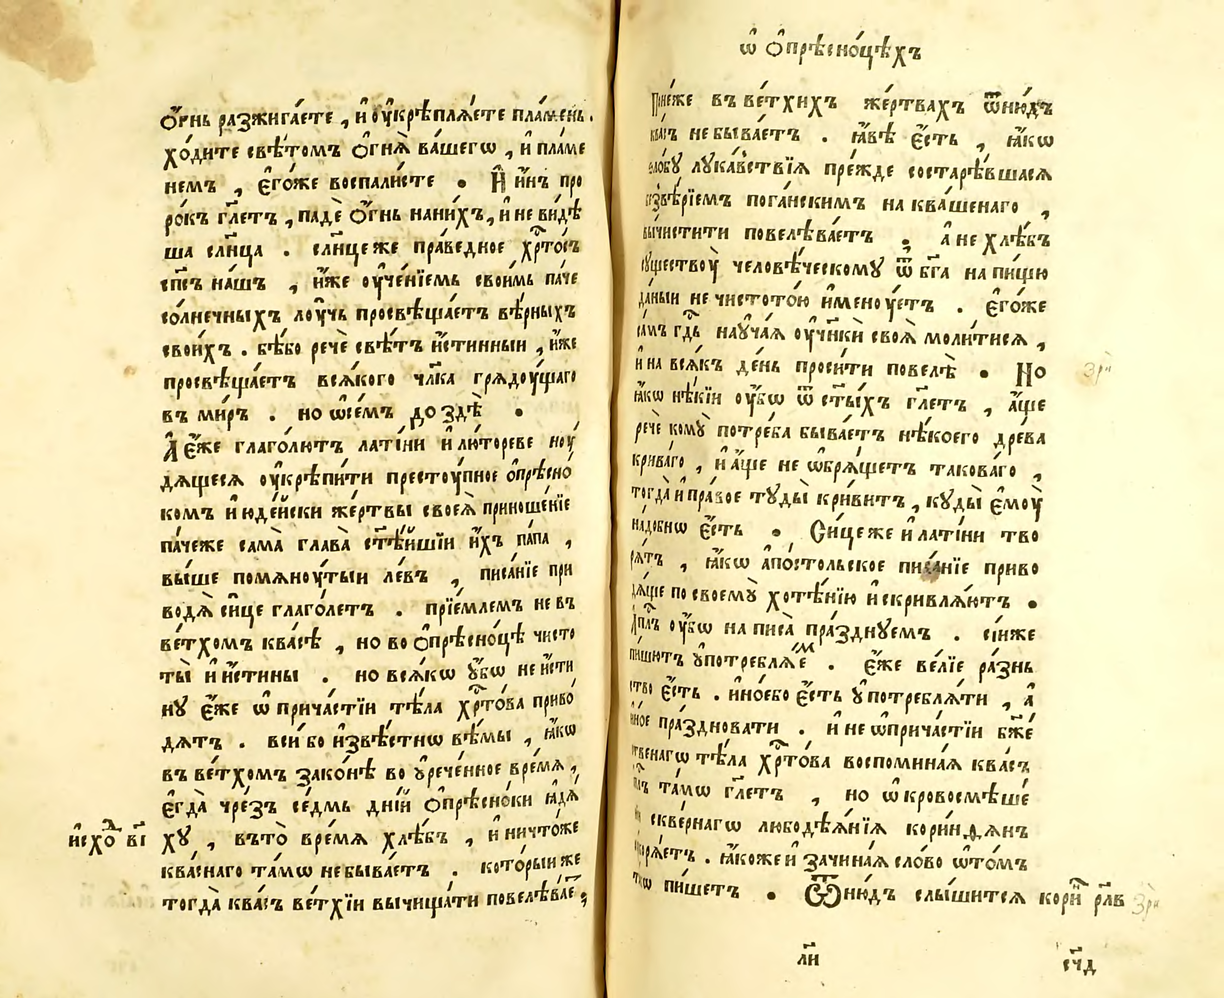 Ѻ҆́гнь разжига́ете , и҆ оу҆крѣплѧ́ете пла́мень .
хо́дите свѣ́томъ ѻ҆гнѧ̀ ва́шегѡ , и҆ пламе
немъ , є҆го́же воспали́сте . И҆ и҆́нъ про
ро́къ гл҃етъ , падѐ ѻ҆́гнь нани́хъ , и҆ не ви́дѣ
ша сл҃нца . сл҃нцеже пра́ведное хр҇то́съ
сп҃съ на́шъ , и҆́же оу҆че́нїемъ свои́мъ па́че
со́лнечныхъ лоу́чь просвѣща́етъ вѣ́рныхъ
свои́хъ . бѣ́бо речѐ свѣ́тъ и҆́стинныи , и҆́же
просвѣща́етъ всѧ́кого чл҃ка грѧдоу́щаго
въ ми́ръ . но ѡ҆се́мъ до здѣ̀ .
А҆ є҆́же глаго́лютъ лати́ни и҆ лю́тореве ноу́
дѧщесѧ оу҆крѣпи́ти престоу́пное ѻ҆прѣсно́
комъ и҆ юдѐйски же́ртвы своеѧ̀ приноше́нїе
па́чеже сама̀ глава̀ ст҃ѣ́йшїи и҆́хъ па́па ,
вы́ше помѧноу́тыи ле́въ , писа́нїе при
водѧ̀ си́це глаго́летъ . прїе́млемъ не въ
ве́тхомъ ква́сѣ , но во ѻ҆прѣсно́цѣ чисто
ты̀ и҆ и҆́стины . но всѧ́кѡ ᲂу҆́бѡ не и҆́сти
ну є҆́же ѡ҆ прича́стїи тѣ́ла хр҇то́ва приво́
дѧтъ . вси́ бо и҆звѣ́стнѡ вѣ́мы , ꙗ҆́кѡ
въ ве́тхомъ зако́нѣ во ᲂу҆рече́нное вре́мѧ ,
є҆гда̀ чре́зъ се́дмь дні́й ѻ҆прѣсно́ки ꙗ҆дѧ́
и҆схо́ⷣ в҃і
ху , въто̀ вре́мѧ хлѣ́бъ , и҆ ничто́же
ква́снаго та́мѡ небыва́етъ . кото́рыи же
тогда̀ ква́съ ве́тхїи вычища́ти повелѣва́е ;
ѡ҆ ѻ҆прѣсно́цѣхъ
Поне́же въ ве́тхихъ же́ртвахъ ѿню́дъ
ква́съ не быва́етъ . ꙗ҆́вѣ є҆́сть , ꙗ҆́кѡ
ѕло́бу лука́вствїѧ пре́жде состарѣ́вшаѧсѧ
безвѣ́рїемъ пога́нскимъ на ква́шенаго ,
вы́чистити повелѣва́етъ . а҆ не хлѣ́бъ
существоу̀ человѣ́ческому ѿ бг҃а на пи́щю
да́ныи не чистото́ю и҆меноу́етъ . є҆го́же
са́мъ гд҇ь нау́чаѧ оу҆чн҃кѝ своѧ̀ моли́тисѧ ,
и҆ на всѧ́къ де́нь проси́ти повелѣ̀ . Но
ꙗ҆́кѡ нѣ́кїи оу҆́бѡ ѿ ст҃ы́хъ гл҃етъ , а҆́ще
речѐ кому̀ потре́ба быва́етъ нѣ́коего дре́ва
крива́го , и҆ а҆́ще не ѡ҆брѧ́щетъ такова́го ,
тогда̀ и҆ пра́вое туды̀ криви́тъ , куды̀ є҆моу̀
на́добнѡ є҆́сть . Си́цеже и҆ лати́ни тво
рѧ́тъ , ꙗ҆́кѡ а҆по́стольское писа́нїе приво
дѧ́ще по своему̀ хотѣ́нїю и҆ скривлѧ́ютъ .
А҆п҇лъ оу҆́бѡ написа̀ пра́зднуемъ . сі́иже
пи́шютъ ᲂу҆потреблѧ́еⷨ . є҆́же ве́лїе ра́знь
ство є҆́сть . и҆но́ебо є҆́сть ᲂу҆потреблѧ́ти , а҆
и҆но́е пра́здновати . и҆ не ѡ҆прича́стїи бж҃е́
ственагѡ тѣ́ла хр҇то́ва воспомина́ѧ ква́съ
та́мѡ гл҃етъ , но ѡ҆ кровосмѣше́
нїи скве́рнагѡ любодѣѧ́нїѧ кори́нѳѧнъ
ꙗ҆́коже и҆ зачина́ѧ сло́во ѡ҆то́мъ
пи́шетъ . Ѿню́дъ слы́шитсѧ кори́ⷩ р҃лв
л҃и
сч҃д